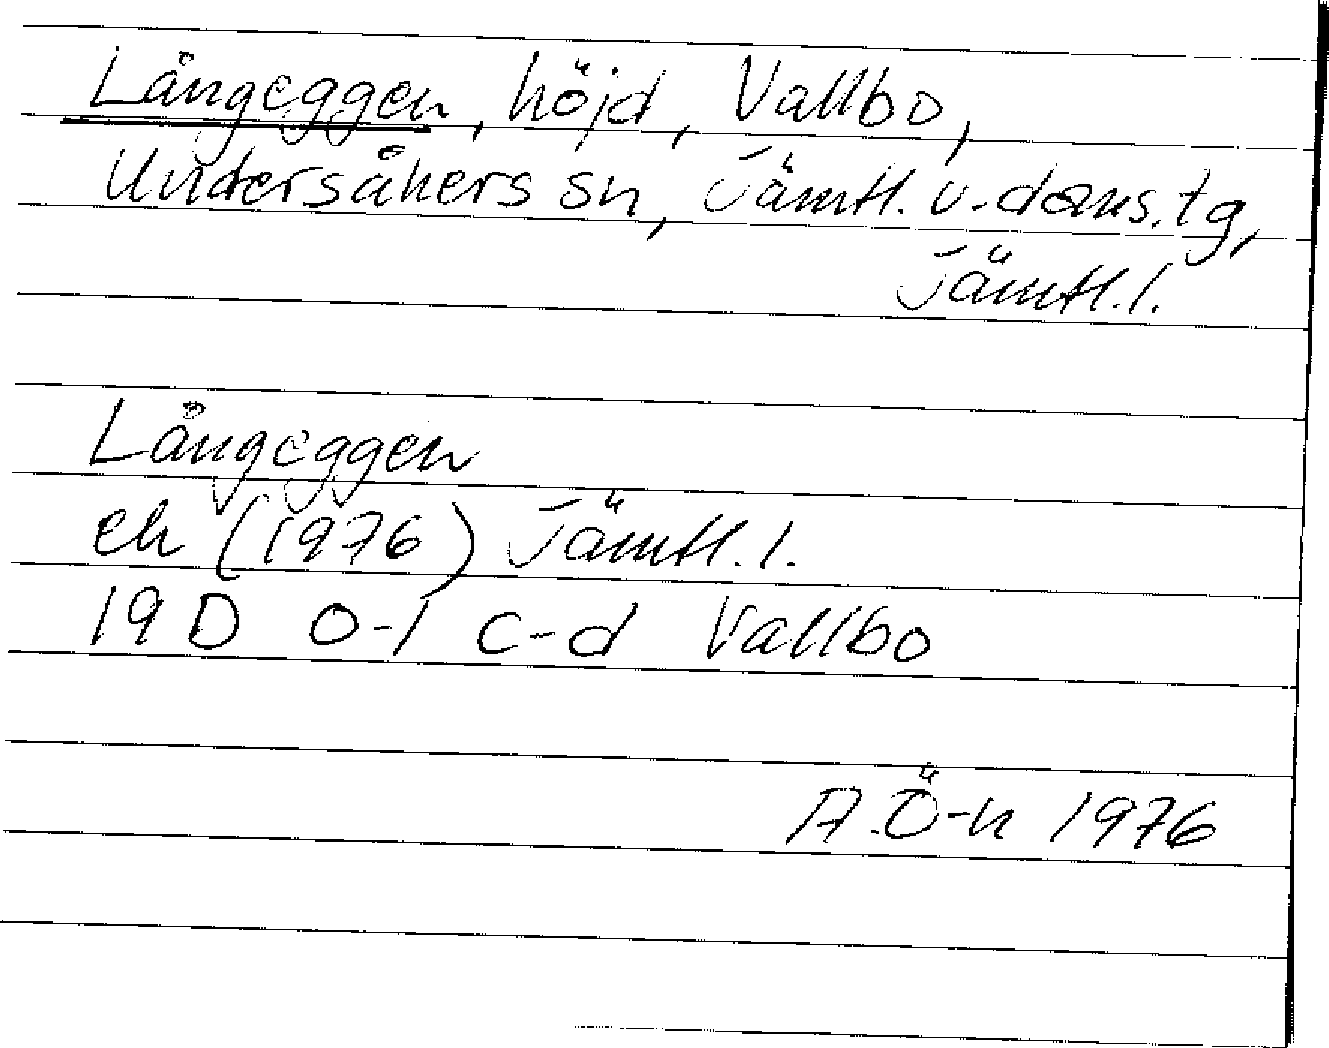 Långeggen, höjd, Vallbo,
Undersåkers sn, Jämtl. v. doms. tg,
Jämtl. l.
Långeggen
ek (1976) Jämtl. l.
19 D 0-1 c-d Vallbo
A. Ö-n 1976